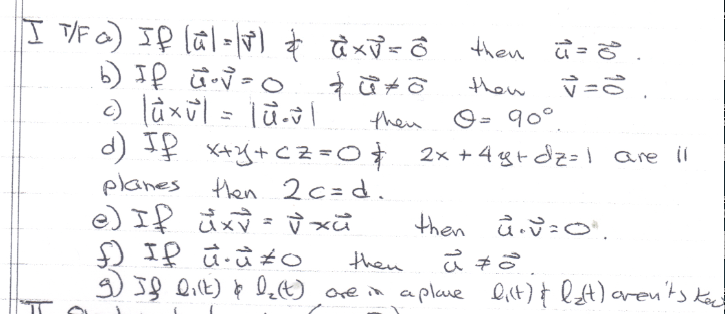 I T/F a) If |u⃗|=|v⃗| & u⃗×v⃗=0⃗ then u⃗=0⃗.
b) If u⃗·v⃗=0 & u⃗≠0⃗ then v⃗=0⃗.
c) |u⃗×v⃗| = |u⃗·v⃗| then θ=90°
d) If x+y+cz=0 & 2x+4y+dz=1 are ||
planes then 2c=d.
e) If u⃗×v⃗ = v⃗×u⃗ then u⃗·v⃗=0.
f) If u⃗·u⃗≠0 then u⃗≠0⃗
g) If l₁(t) & l₂(t) are in a plane l₁(t) & l₂(t) aren't